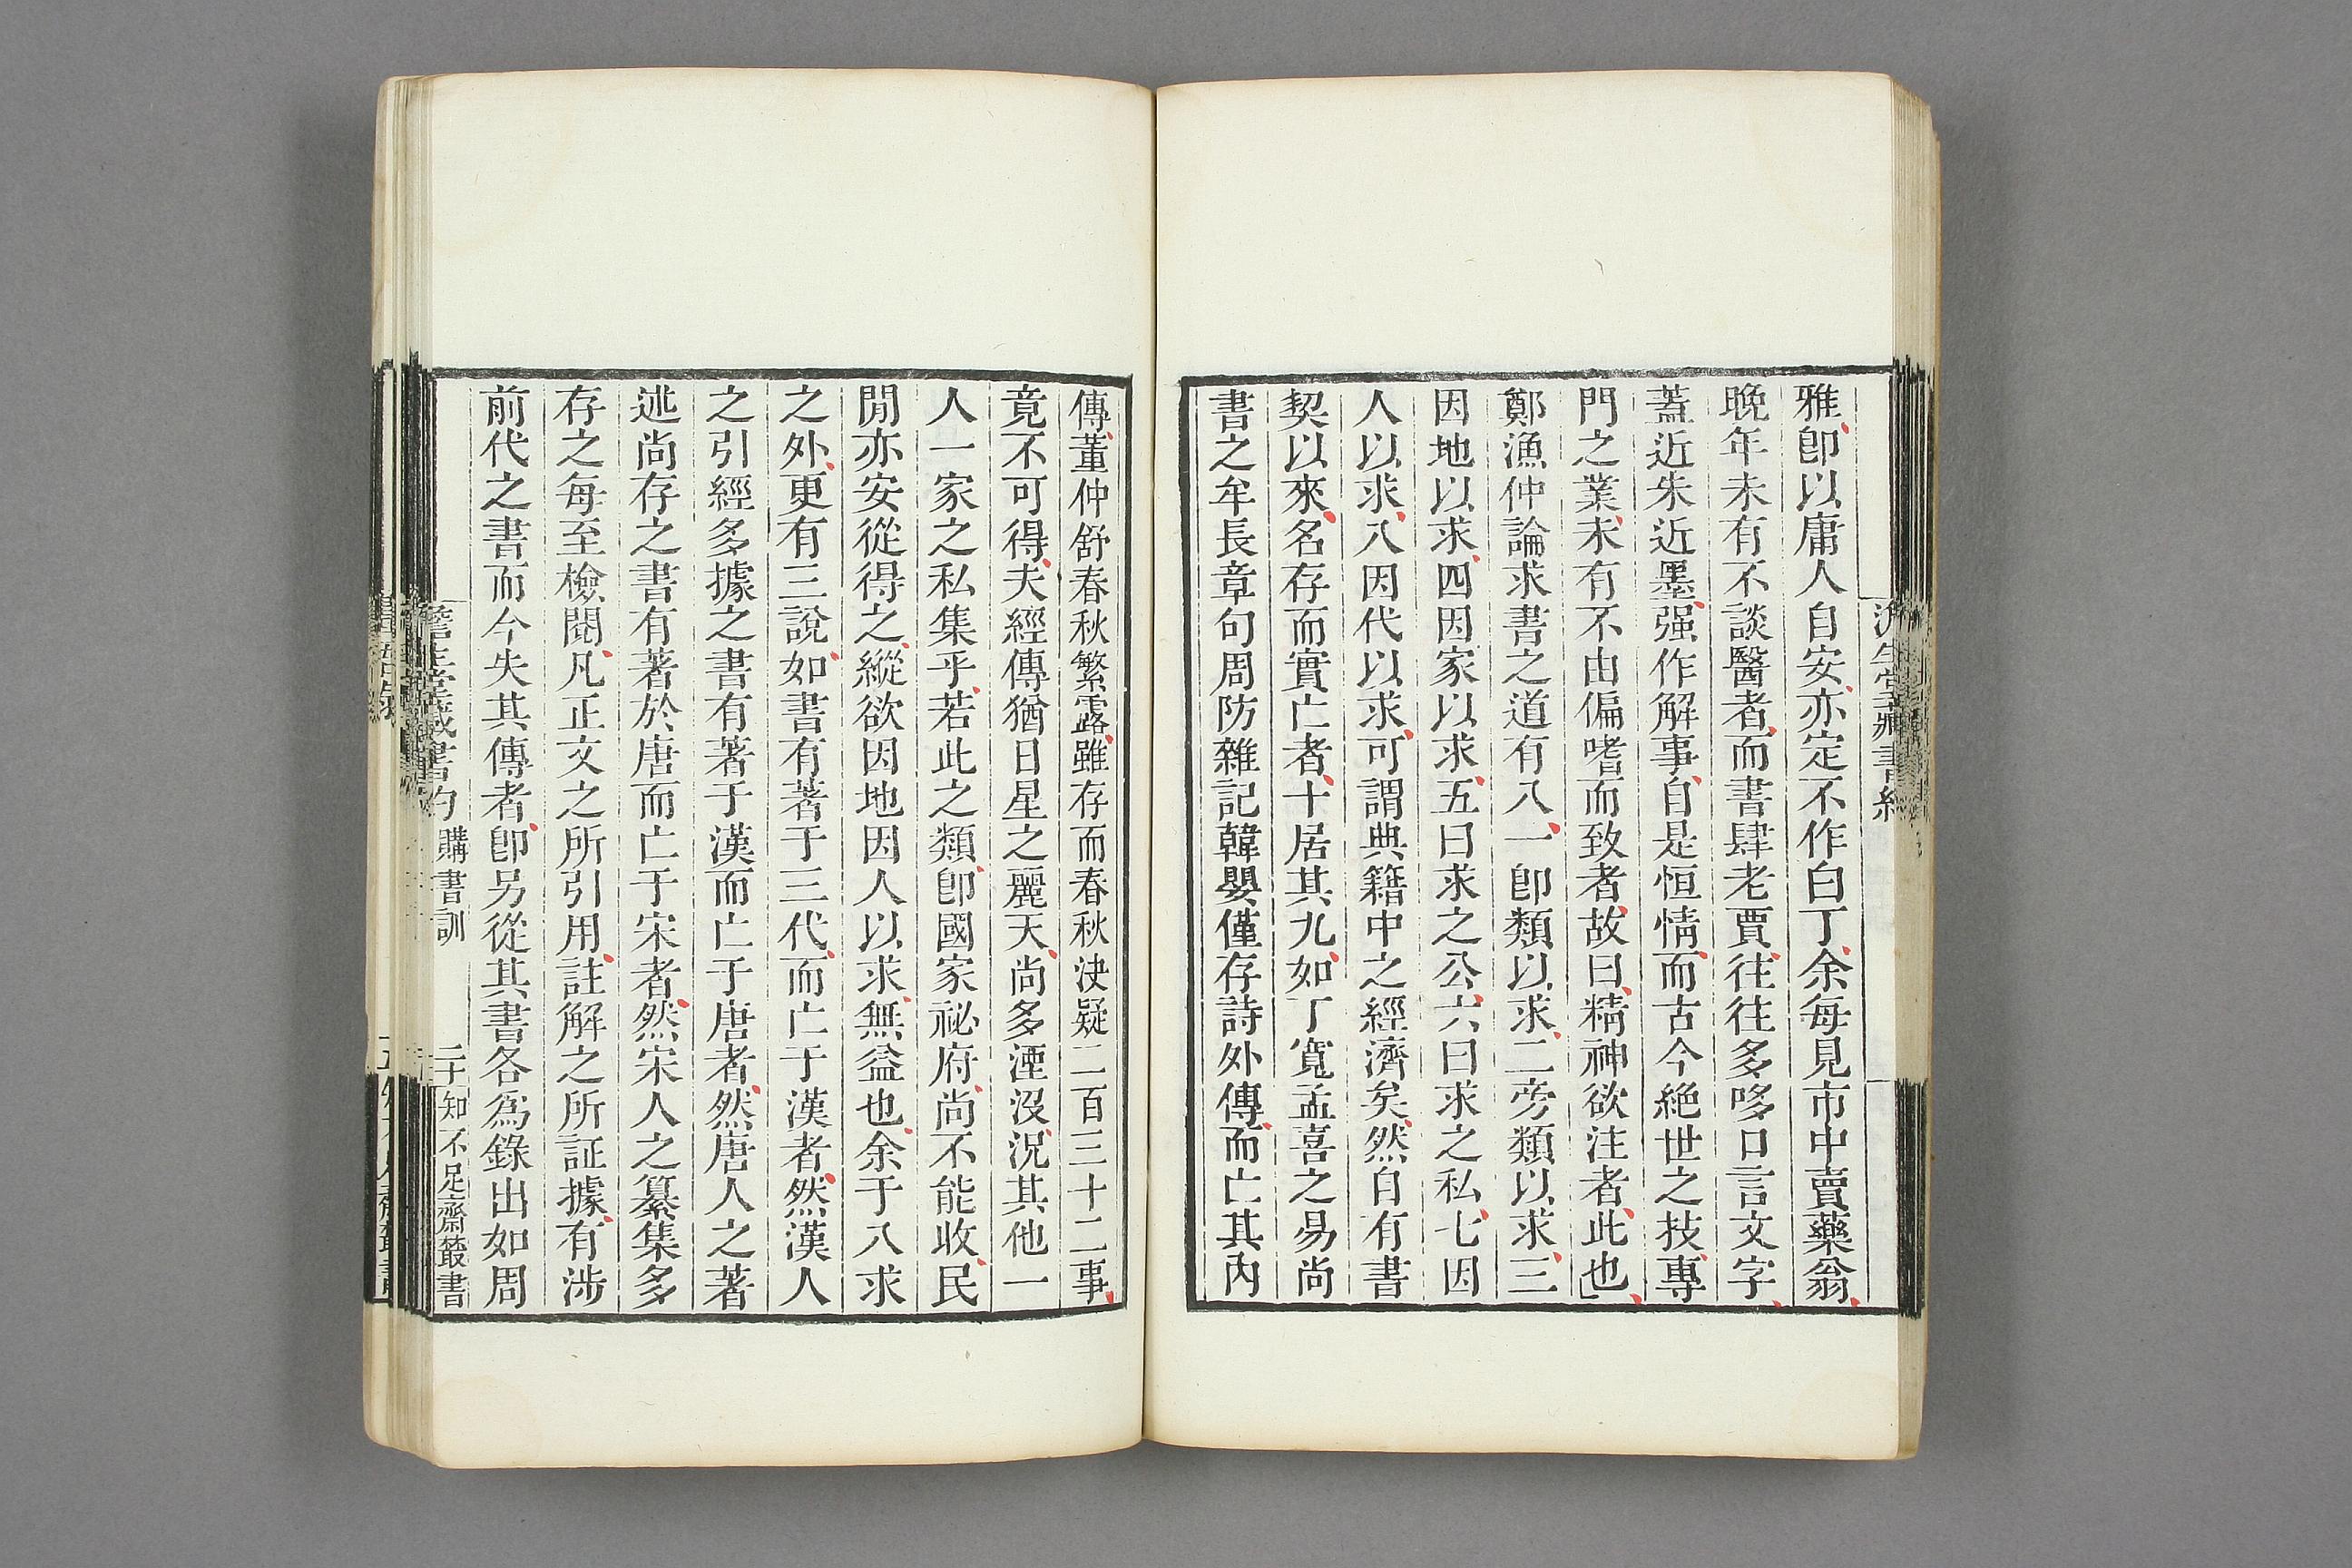 雅卽以庸人自安亦定不作白丁余每見市中賣藥翁
晚年未有不談醫者而書肆老賈往往多哆口言文字
蓋近朱近墨强作解事自是恒情而古今絶世之技專
門之業未有不由偏嗜而致者故曰精神欲注者此也
鄭漁仲論求書之道有八一卽類以求二旁類以求三
因地以求四因家以求五曰求之公六曰求之私七因
人以求八因代以求可謂典籍中之經濟矣然自有書
契以來名存而實亡者十居其九如丁寬孟喜之易尚
書之牟長章句周防雜記韓嬰僅存詩外傳而亡其內
傳董仲舒春秋繁露雖存而春秋決疑二百三十二事
竟不可得夫經傳猶日星之麗天尚多湮沒況其他一
人一家之私集乎若此之類卽國家祕府尚不能收民
閒亦安從得之縱欲因地因人以求無益也余于八求
之外更有三說如書有著于三代而亡于漢者然漢人
之引經多據之書有著于漢而亡于唐者然唐人之著
述尚存之書有著於唐而亡于宋者然宋人之纂集多
存之每至檢閱凡正文之所引用註解之所証據有涉
前代之書而今失其傳者卽另從其書各爲錄出如周
澹生堂藏書約 購書訓 二十 知不足齋叢書